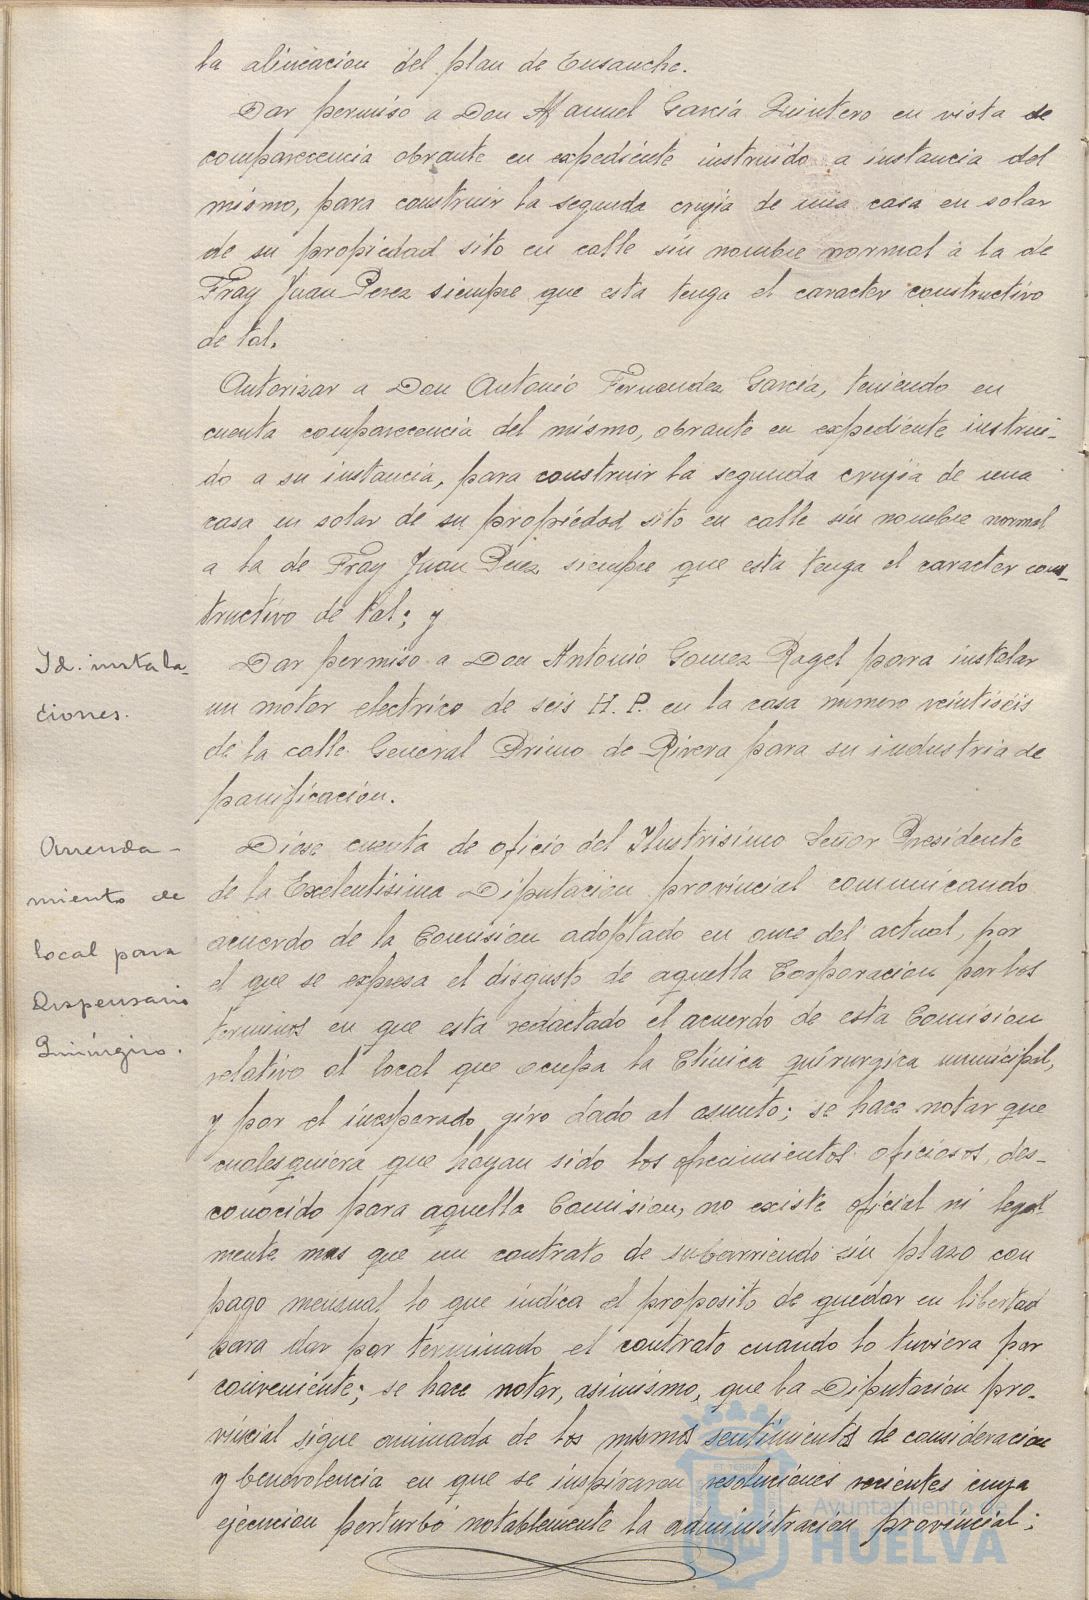 la alineacion del plan de Ensanche.
Dar permiso a Don Manuel García Quintero en vista de
comparecencia obrante en expediente instruido a instancia del
mismo, para construir la segunda crujia de una casa en solar
de su propiedad sito en calle sin nombre normal a la de
Fray Juan Perez siempre que esta tenga el caracter constructivo
de tal.
Autorizar a Don Antonio Fernandez García, teniendo en
cuenta comparecencia del mismo, obrante en expediente instrui-
do a su instancia, para construir la segunda crujia de una
casa en solar de su propiedad sito en calle sin nombre normal
a la de Fray Juan Perez siempre que esta tenga el caracter cons-
tructivo de tal; y
Id. instala-
ciones.
Dar permiso a Don Antonio Gomez Rogel para instalar
un motor electrico de seis H. P. en la casa numero veintiseis
de la calle General Primo de Rivera para su industria de
panificacion.
Arrenda-
miento de
local para
Dispensario
Quirúrgico.
Dióse cuenta de oficio del Ilustrisimo Señor Presidente
de la Excelentisima Diputacion provincial comunicando
acuerdo de la Comision adoptado en once del actual, por
el que se expresa el disgusto de aquella Corporacion por los
terminos en que esta redactado el acuerdo de esta Comision
relativo al local que ocupa la Clinica quirurgica municipal,
y por el inesperado giro dado al asunto; se hace notar que
cualesquiera que hayan sido los ofrecimientos oficiosos, des-
conocido para aquella Comision, no existe oficial ni legal-
mente mas que un contrato de subarriendo sin plazo con
pago mensual lo que indica el proposito de quedar en libertad
para dar por terminado el contrato cuando lo tuviera por
conveniente; se hace notar, asimismo, que la Diputacion pro-
vincial sigue animada de los mismos sentimientos de consideracion
y benevolencia en que se inspiraron resoluciones recientes cuya
ejecucion perturbó notablemente la administracion provincial;
Ayuntamiento de
HUELVA